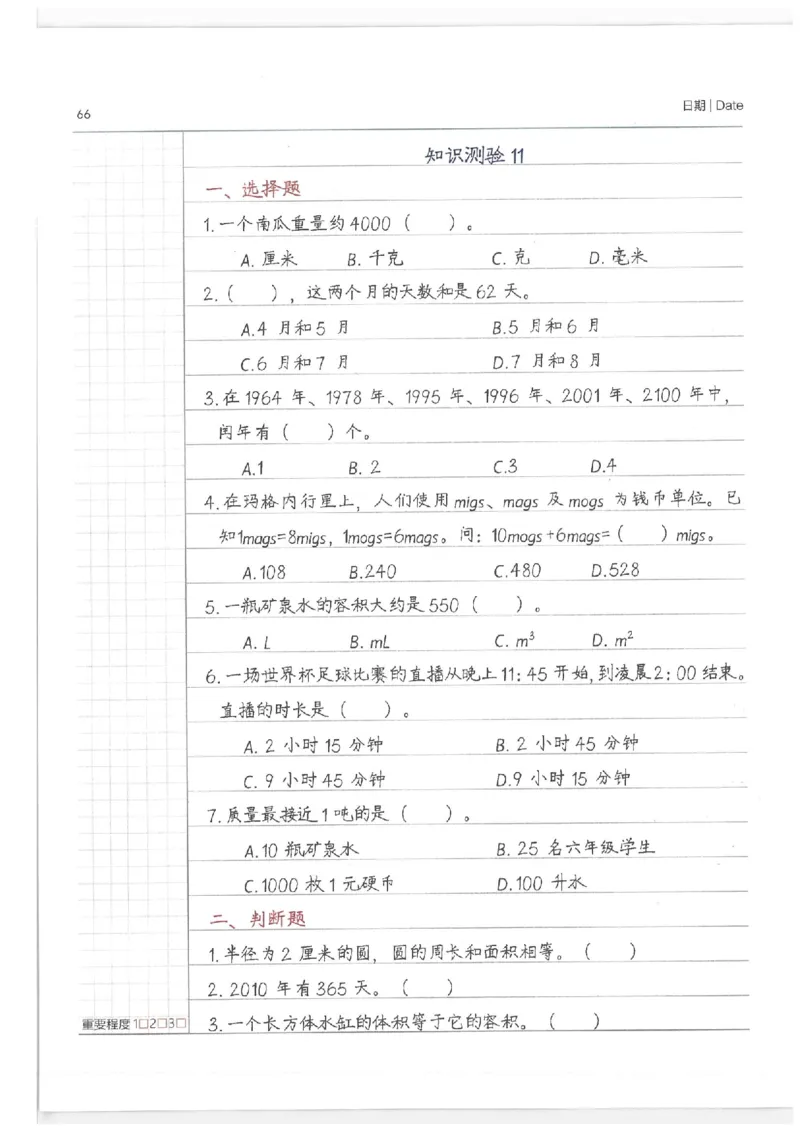 66
日期 | Date
知识测验 11
一、选择题
1.一个南瓜重量约4000（    ）。
A. 厘米 B. 千克 C. 克 D. 毫米
2.（    ），这两个月的天数和是62 天。
A.4 月和5 月 B.5 月和6 月
C.6 月和7 月 D.7 月和8 月
3.在1964 年、1978 年、1995 年、1996 年、2001 年、2100 年中，
闰年有（    ）个。
A.1 B. 2 C.3 D.4
4.在玛格内行星上，人们使用 migs、mags 及 mogs 为钱币单位。已
知1mags=8migs，1mogs=6mags。问：10mogs+6mags=（    ）migs。
A.108 B.240 C.480 D.528
5.一瓶矿泉水的容积大约是550（    ）。
A. L B. mL C. m³ D. m²
6.一场世界杯足球比赛的直播从晚上11：45 开始,到凌晨2：00 结束。
直播的时长是（    ）。
A. 2 小时15 分钟 B. 2 小时45 分钟
C. 9 小时45 分钟 D.9 小时15 分钟
7.质量最接近1吨的是（    ）。
A.10 瓶矿泉水 B. 25 名六年级学生
C.1000 枚1元硬币 D.100 升水
二、判断题
1.半径为2 厘米的圆，圆的周长和面积相等。（    ）
2.2010 年有365 天。（    ）
3.一个长方体水缸的体积等于它的容积。（    ）
重要程度 1□2□3□